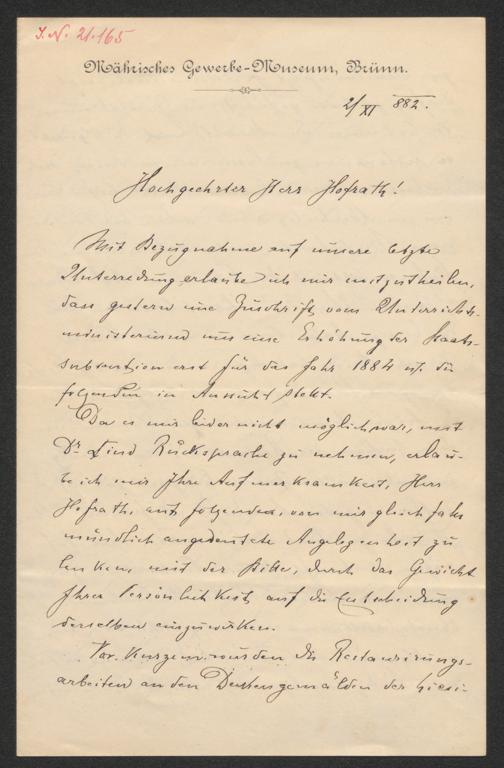 I. N. 21.165
Mährisches Gewerbe-Museum, Brünn.
2/XI 882.
Hochgeehrter Herr Hofrath!
Mit Bezugnahme auf unsere letzte
Unterredung erlaube ich mir mitzutheilen,
dass gestern eine Zuschrift vom Unterrichts-
ministerium uns eine Erhöhung der Staats-
subvention erst für das Jahr 1884 u. die
folgenden in Aussicht stellt.
Da es mir leider nicht möglich war, mit
Dr. Lind Rücksprache zu nehmen, erlau-
be ich mir Ihre Aufmerksamkeit, Herr
Hofrath, auf folgende, von mir gleichfalls
mündlich angedeutete Angelegenheit zu
lenken, mit der Bitte, durch das Gewicht
Ihrer Persönlichkeit auf die Entscheidung
derselben einzuwirken.
Vor Kurzem wurden die Restaurirungs-
arbeiten an den Deckengemälden der hiesi-